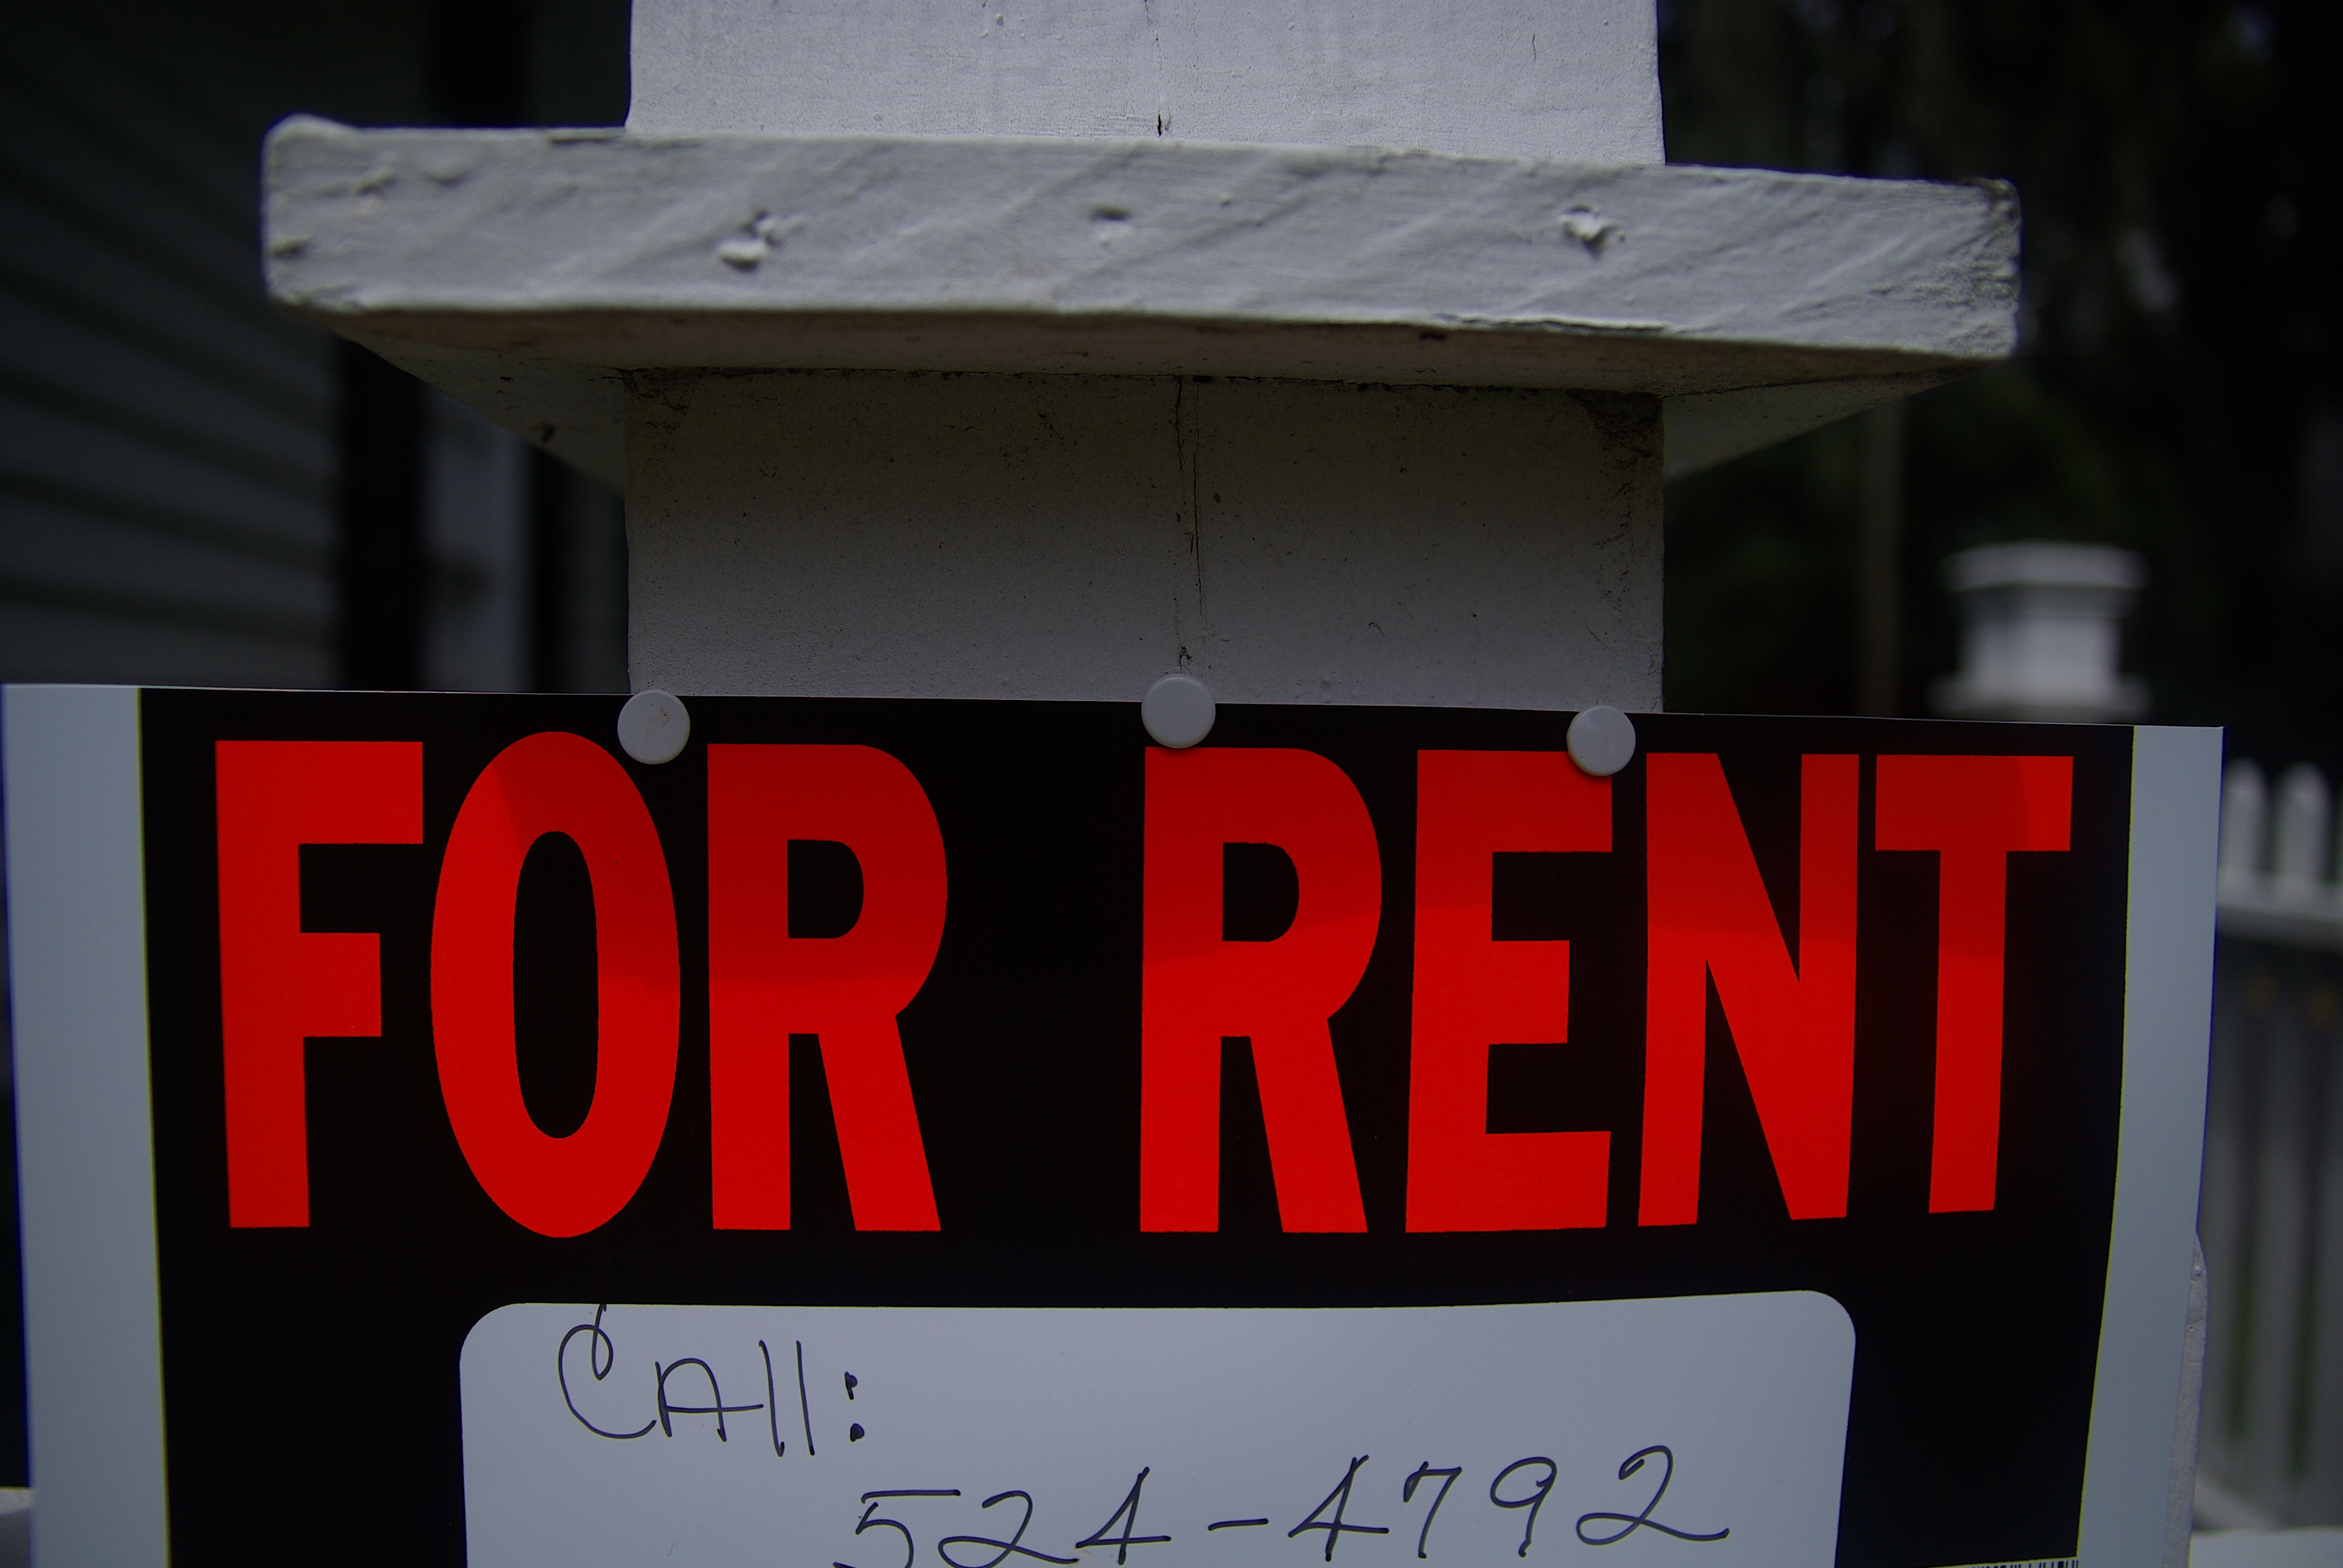 FOR RENT
CAll:
524-4792